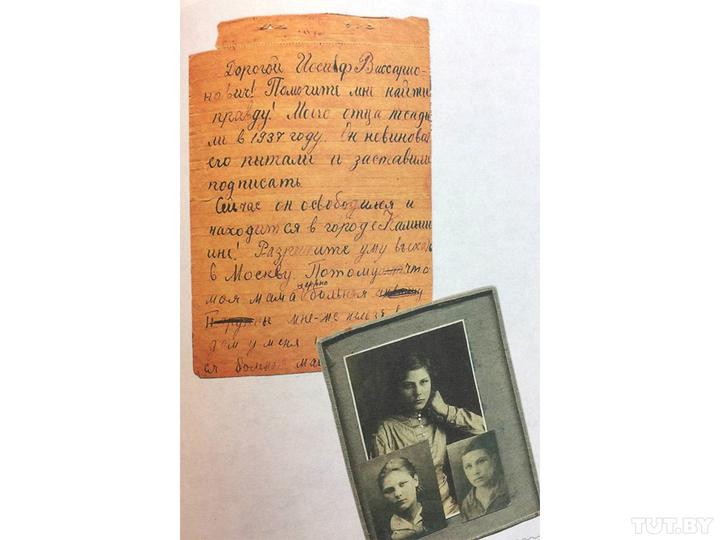 Дорогой Иосиф Виссарио-
нович! Помогите мне найти
правду! Моего отца посади
ли в 1937 году. Он невинова
его пытали и заставили
подписать.
Сейчас он освободился и
находится в городе Калин
ине! Разрешите уму въехать
в Москву. Потому что
моя мама нервно больная
мне-же нельзя
у меня
больная
TUT.BY